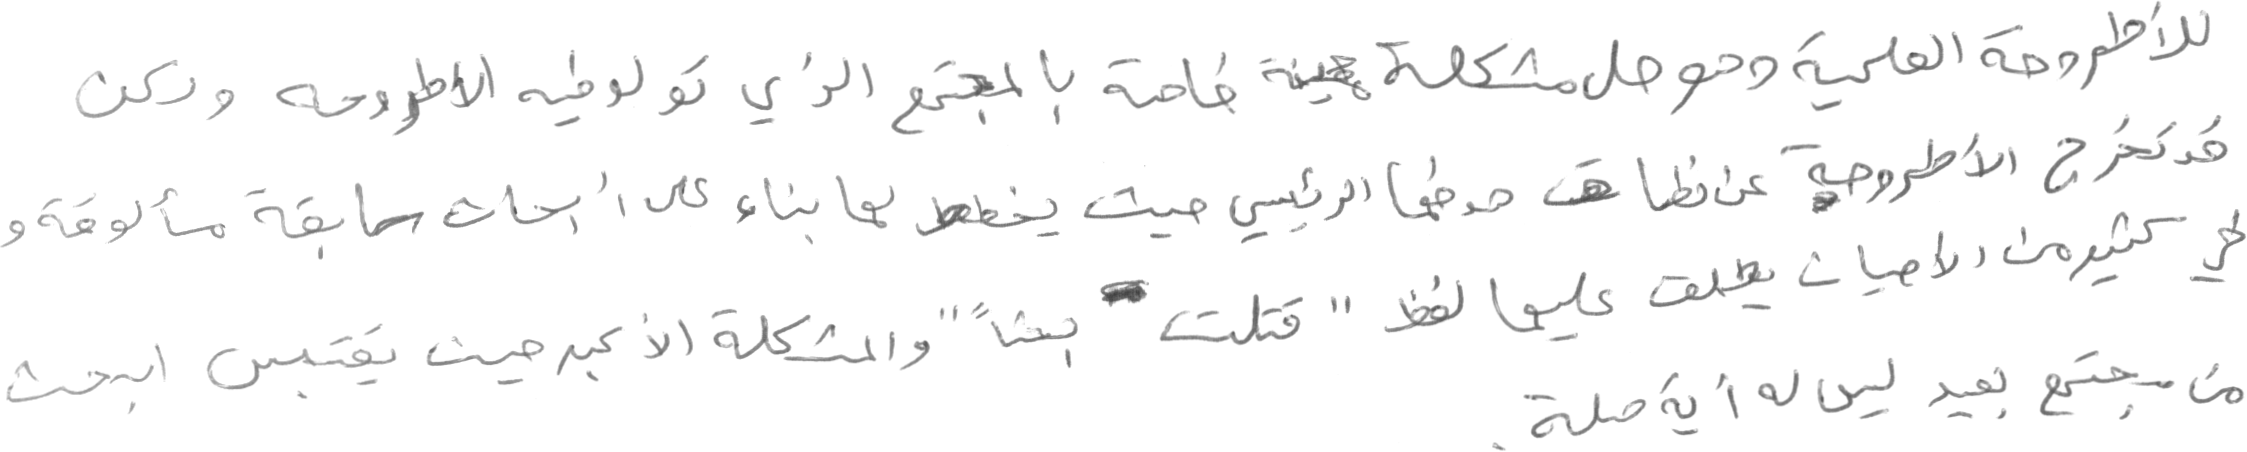 للأطروحة العلمية وهو حل مشكلة معينة خاصة بالمجتمع الذي تولو فيه الاطروحه ولكن
قد تخرج الأطروحة عن نطاق هدفها الرئيسي حيث يخطط لها بناء على أبحاث سابقة مألوفة و
في كثير من الاحيان يطلق عليها لفظ " قتلت بحثاً " والمشكلة الأكبر حيث يقتبس البحث
من مجتمع بعيد ليس له أية صلة .